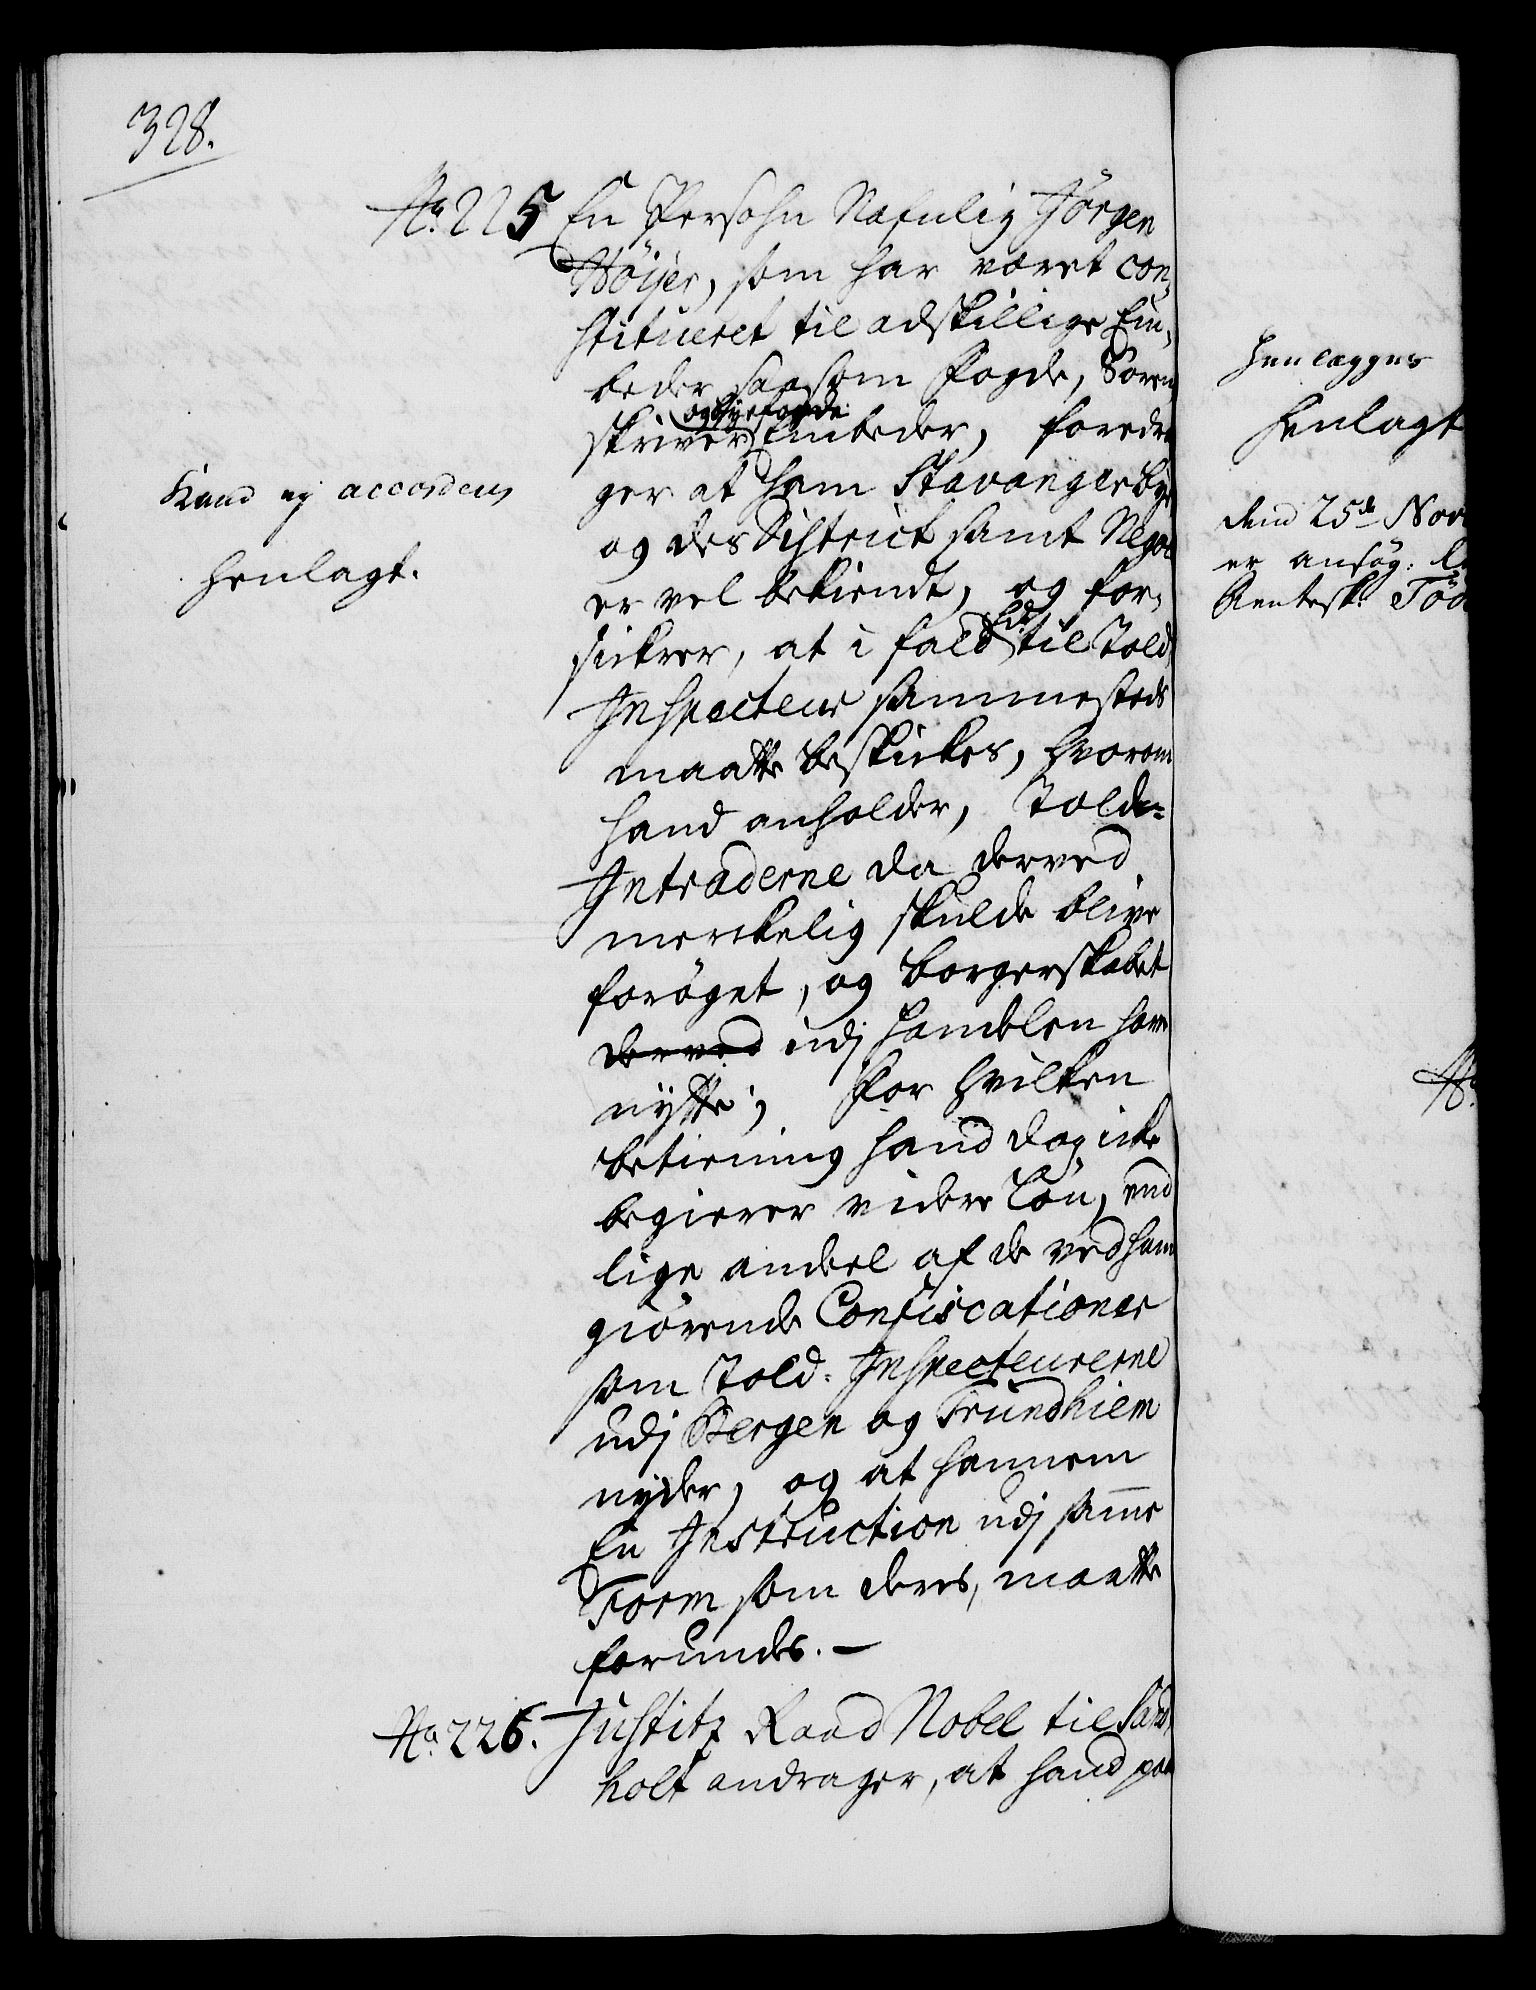 328.
No. 225 En Persohn Nafnlig Jörgen
Höijer, som har været con-
stitueret til adskillige Em-
beder saasom foged, Soren-
og Byefogde
skriver Embeder, foredra-
ger at ham Stavanger Bye
og des District samt Negoce
er vel bekiendt, og for-
sickrer, at i fald hd. til Told
Inspecteur sammesteds
maatte beskickes, hvorom
hand anholder, Told-
Intraderne da derved
merckelig skulde blive
forøget, og borgerskabet
derved udj Handelen have
nytte; For hvilken
betiening hand dog icke
begierer videre Løn, end
lige andeel af de ved ham
giørende Confiscationer
som Told-Inspecteurerne
udj Bergen og Trundhiem
nyder, og at hannem
En Instruction udj samme
Form som deres, maatte
forundes. —
No. 226. Justitz Raad Nobel til Sand-
holt andrager, at hand paa
Kand ej accorderes
Henlagt.
Henlægges
Henlagt
dend 25de Nov
er ansøg:
Rentesk:
No